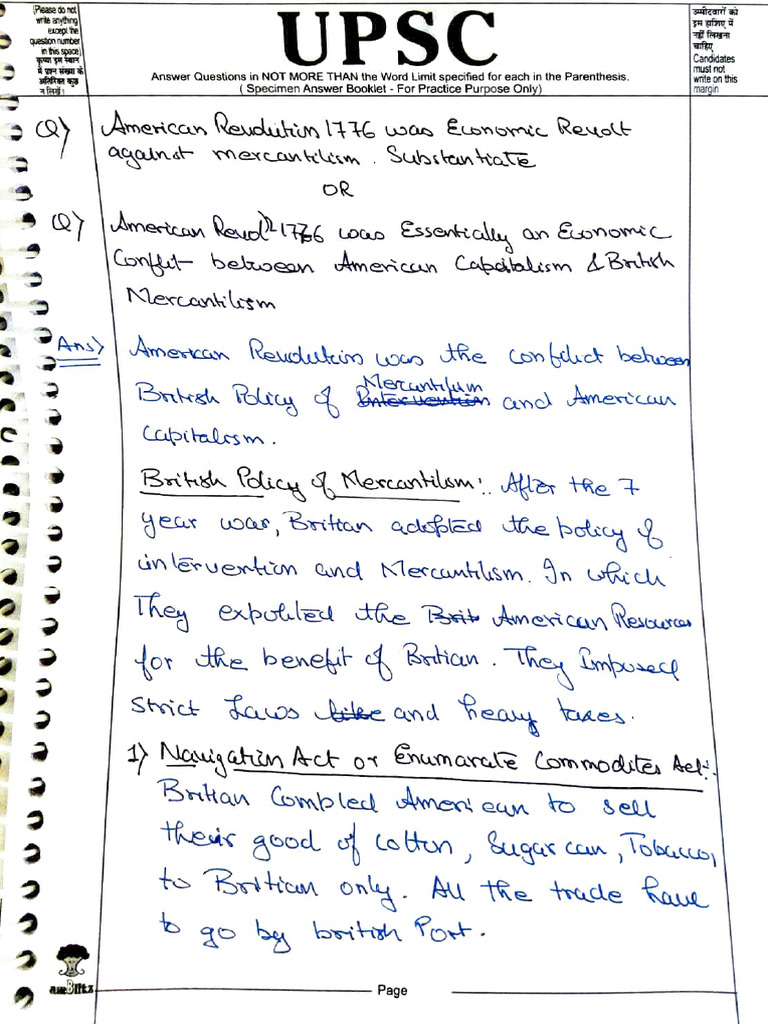 (Please do not
write anything
except the
question number
in this space)
कृपया इस स्थान
में प्रश्न संख्या के
अतिरिक्त कुछ
न लिखें।
UPSC
Answer Questions in NOT MORE THAN the Word Limit specified for each in the Parenthesis.
( Specimen Answer Booklet - For Practice Purpose Only)
उम्मीदवारों को
इस हाशिए में
नहीं लिखना
चाहिए
Candidates
must not
write on this
margin
Q) American Revolution 1776 was Economic Revolt
against mercantilism. Substantiate
OR
Q) American Revolⁿ 1776 was Essentially an Economic
Conflict between American Capitalism & British
Mercantilism
Ans) American Revolution was the conflict between
British Policy of Intervention Mercantilism and American
Capitalism.
British Policy of Mercantilism:. After the 7
year war, Brittan adopted the policy of
intervention and Mercantilism. In which
They expolited the Brit American Resources
for the benefit of Britian. They Imposed
strict Laws like and heavy taxes.
1) Navigation Act or Enumarate Commodites Act:.
Britian Compled American to sell
their good of cotton, Sugar can, Tobacco,
to Britian only. All the trade have
to go by british Port.
Page